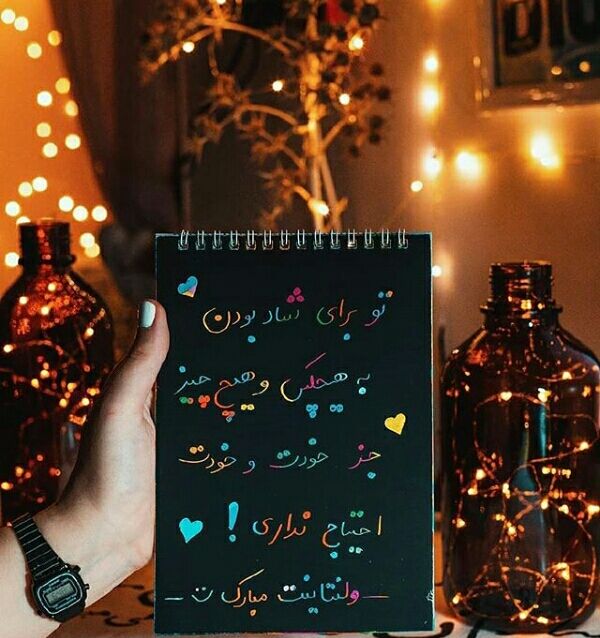 تو برای شاد بودن
به هیچکس و هیچ چیز
جز خودت و خودت
احتیاج نداری !
_ ولنتاینت مبارک ت _